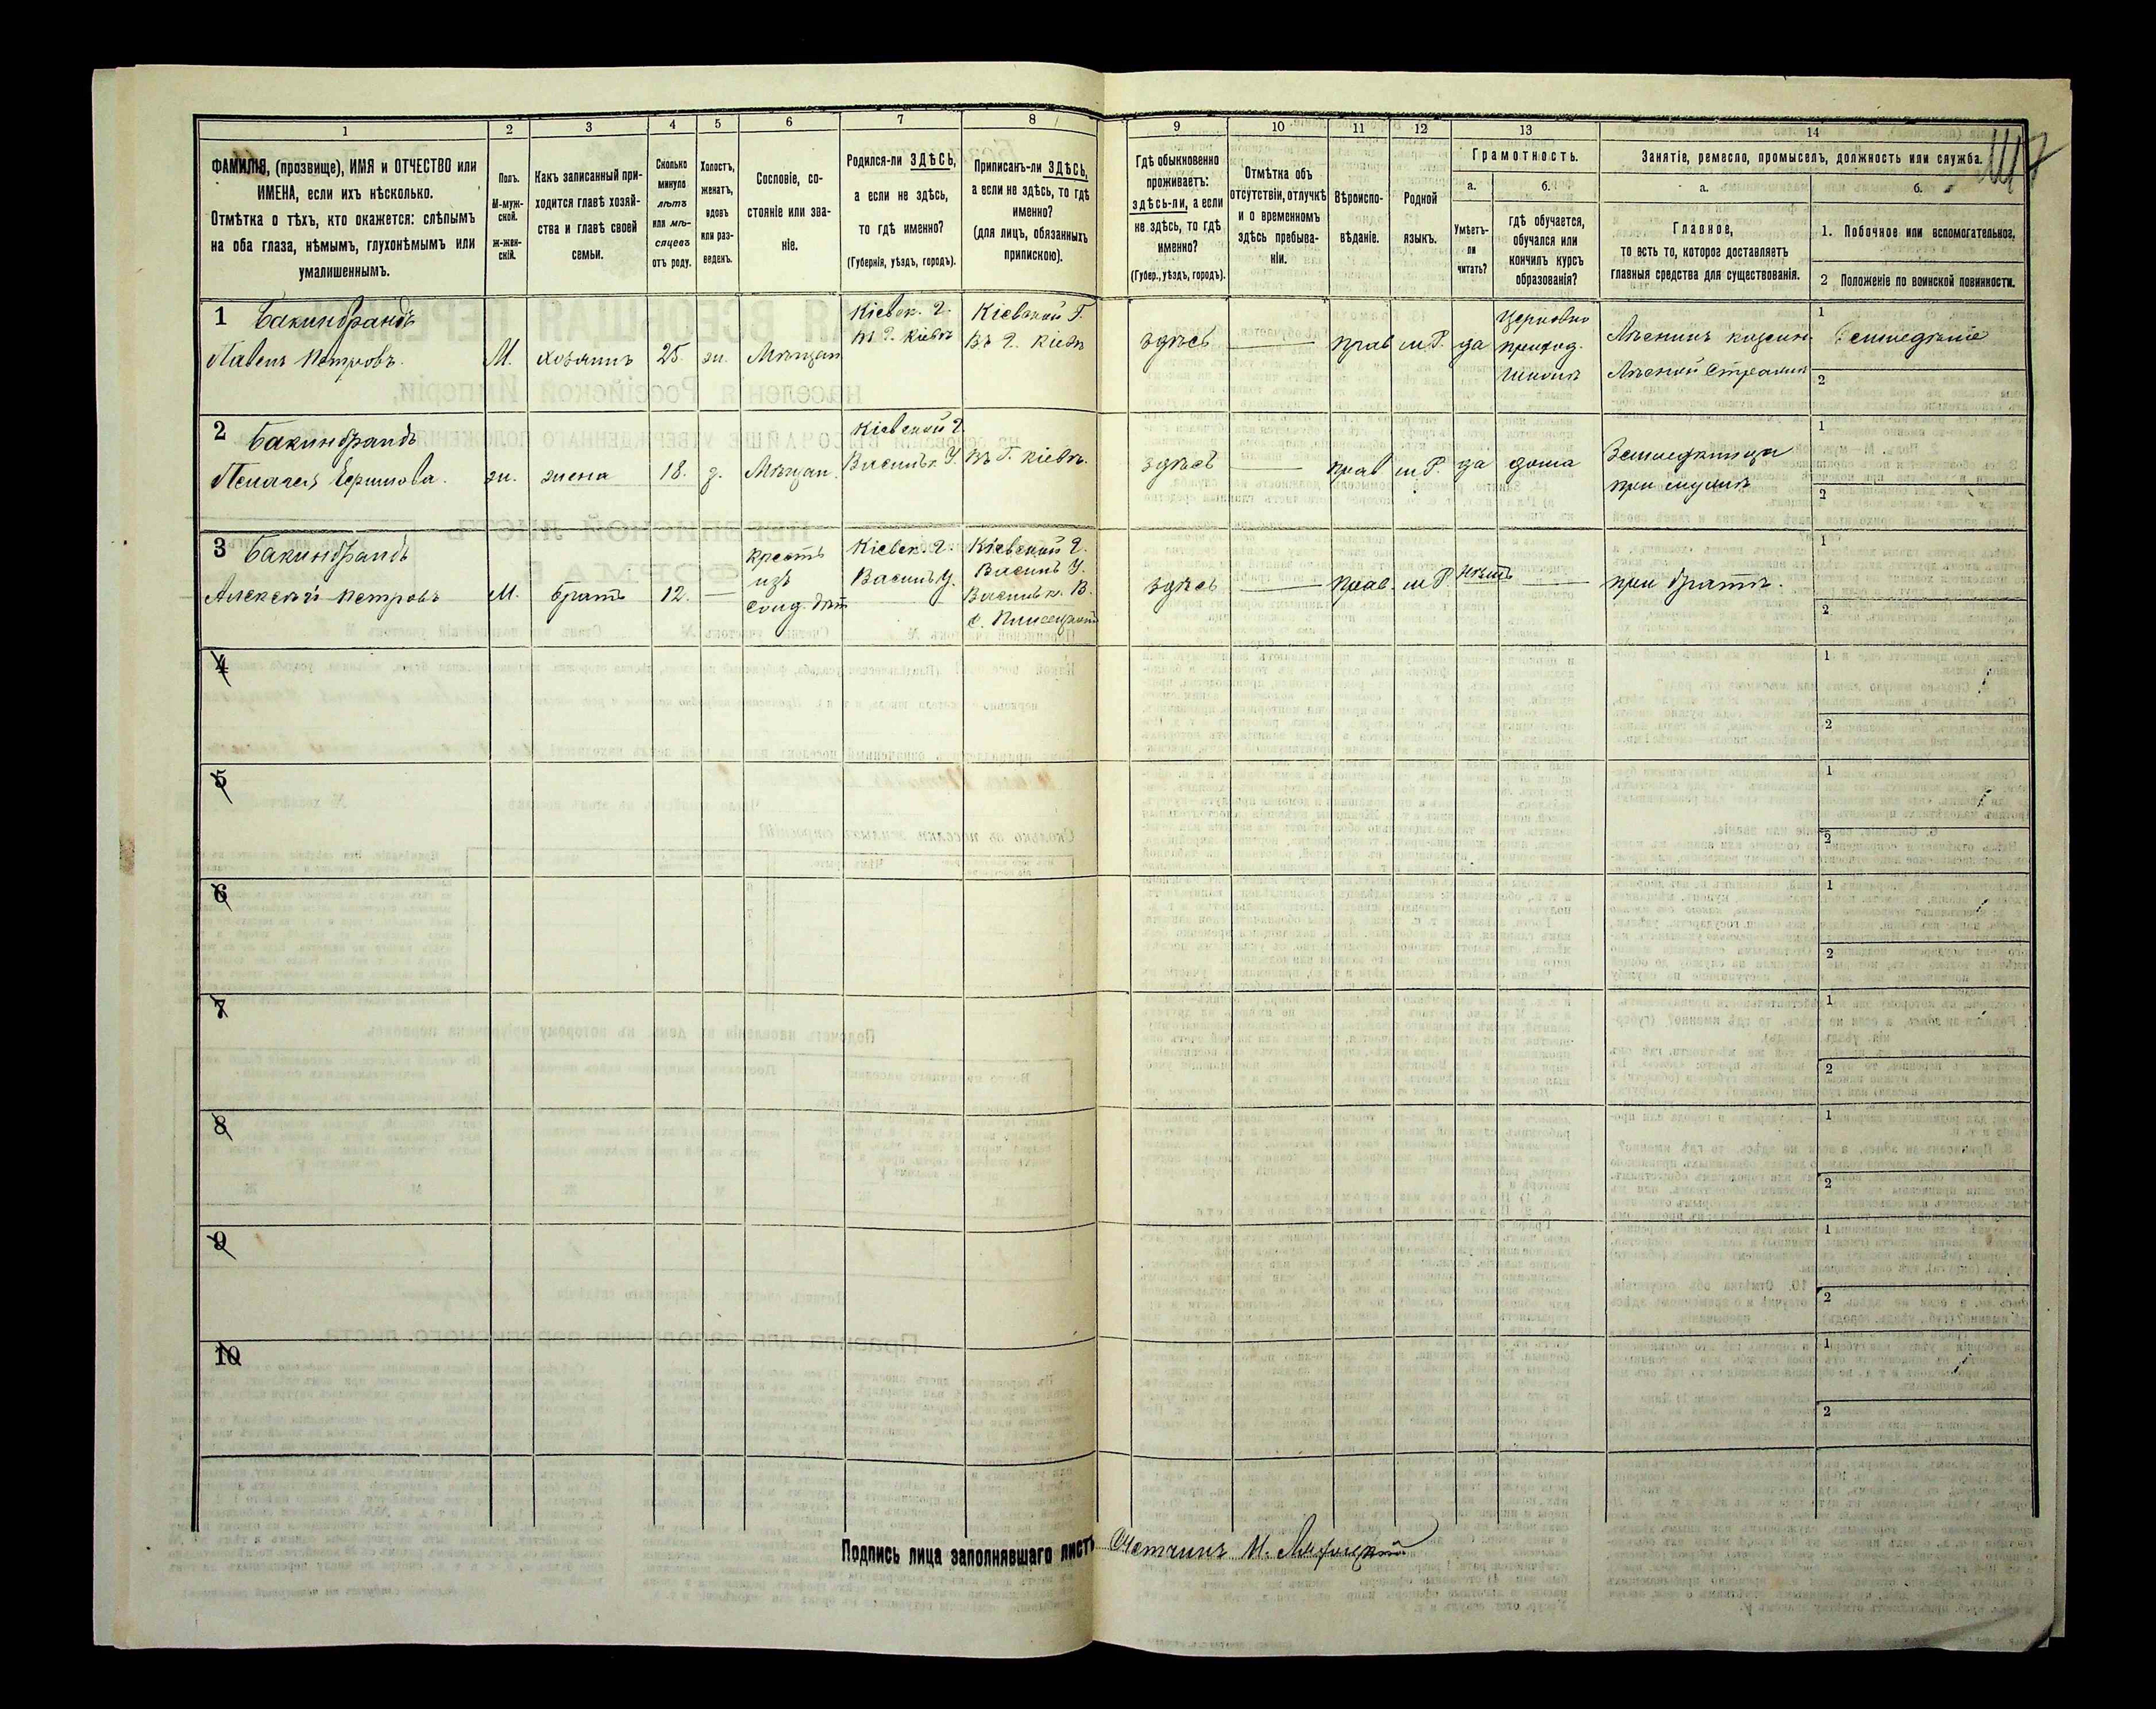 1 2 3 4 5 6 7 8 9 10 11 12 13 14
ФАМИЛІЯ, (прозвище), ИМЯ и ОТЧЕСТВО или
ИМЕНА, если ихъ нѣсколько.
Отмѣтка о тѣхъ, кто окажется: слѣпымъ
на оба глаза, нѣмымъ, глухонѣмымъ или
умалишеннымъ.
Полъ.
М-муж-
ской.
ж-жен-
скій.
Какъ записанный при-
ходится главѣ хозяй-
ства и главѣ своей
семьи.
Сколько
минуло
лѣтъ
или мѣ-
сяцевъ
отъ роду.
Холостъ,
женатъ,
вдовъ
или раз-
веденъ.
Сословіе, со-
стояніе или зва-
ніе.
Родился-ли ЗДѢСЬ,
а если не здѣсь,
то гдѣ именно?
(Губернія, уѣздъ, городъ).
Приписанъ-ли ЗДѢСЬ,
а если не здѣсь, то гдѣ
именно?
(для лицъ, обязанныхъ
припискою).
Гдѣ обыкновенно
проживаетъ:
здѣсь-ли, а если
не здѣсь, то гдѣ
именно?
(Губер., уѣздъ, городъ).
Отмѣтка объ
отсутствіи, отлучкѣ
и о временномъ
здѣсь пребыва-
ніи.
Вѣроиспо-
вѣданіе.
Родной
языкъ.
Грамотность.
а.
Умѣетъ-
ли
читать?
б.
гдѣ обучается,
обучался или
кончилъ курсъ
образованія?
Занятіе, ремесло, промыселъ, должность или служба.
а.
Главное,
то есть то, которое доставляетъ
главныя средства для существованія.
б.
1. Побочное или вспомогательное.
2 Положеніе по воинской повинности.
1 Бакинбрандъ
Павелъ Петровъ.
М.
хозяинъ
25.
ж.
Мѣщан
Кіевск. г.
въ г. Кіевѣ
Кіевской Г.
Въ г. Кіевѣ
здѣсь
прав
м.Р.
да
Церковно
приход.
школѣ
Лѣсникъ казенн.
Лѣсной Стражи
1 Земледѣліе
2
2 Бакинбрандъ
Пелагея Ефимова.
ж.
жена
18.
з.
Мѣщан.
Кіевской г.
Васильк. У.
въ Г. Кіевѣ.
здѣсь
прав
м.Р.
да
дома
Земледѣлица
при мужѣ
1
2
3 Бакинбрандъ
Алексѣй Петровъ
М.
братъ
12.
крест
изъ
солд. дѣт
Кіевск. г.
Васильк У.
Кіевской г.
Васильк У.
Васильк. В.
с. Плисецкой
здѣсь
прав.
м.Р.
нѣтъ
при братѣ.
1
2
4
1
2
5
1
2
6
1
2
7
1
2
8
1
2
9
1
2
10
1
2
Подпись лица заполнявшаго листъ Счетчикъ М.